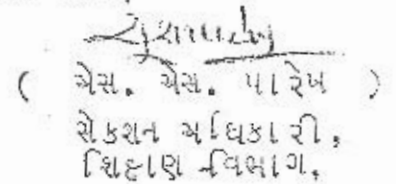 ( એસ. એસ. પારેખ )
સેકશન અધિકારી,
શિક્ષણ વિભાગ.